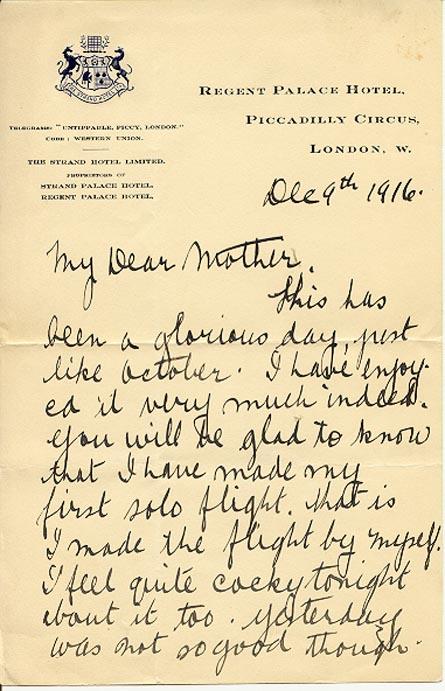 REGENT PALACE HOTEL,
PICCADILLY CIRCUS,
LONDON, W.
TELEGRAMS: "UNTIPPABLE, PICCY, LONDON."
CODE: WESTERN UNION.
THE STRAND HOTEL LIMITED.
PROPRIETORS OF
STRAND PALACE HOTEL.
REGENT PALACE HOTEL.
Dec 9th 1916.
My Dear Mother.
This has
been a glorious day, just
like October. I have enjoy-
ed it very much indeed.
You will be glad to know
that I have made my
first solo flight. That is
I made the flight by myself.
I feel quite cocky tonight
about it too. Yesterday
was not so good though.